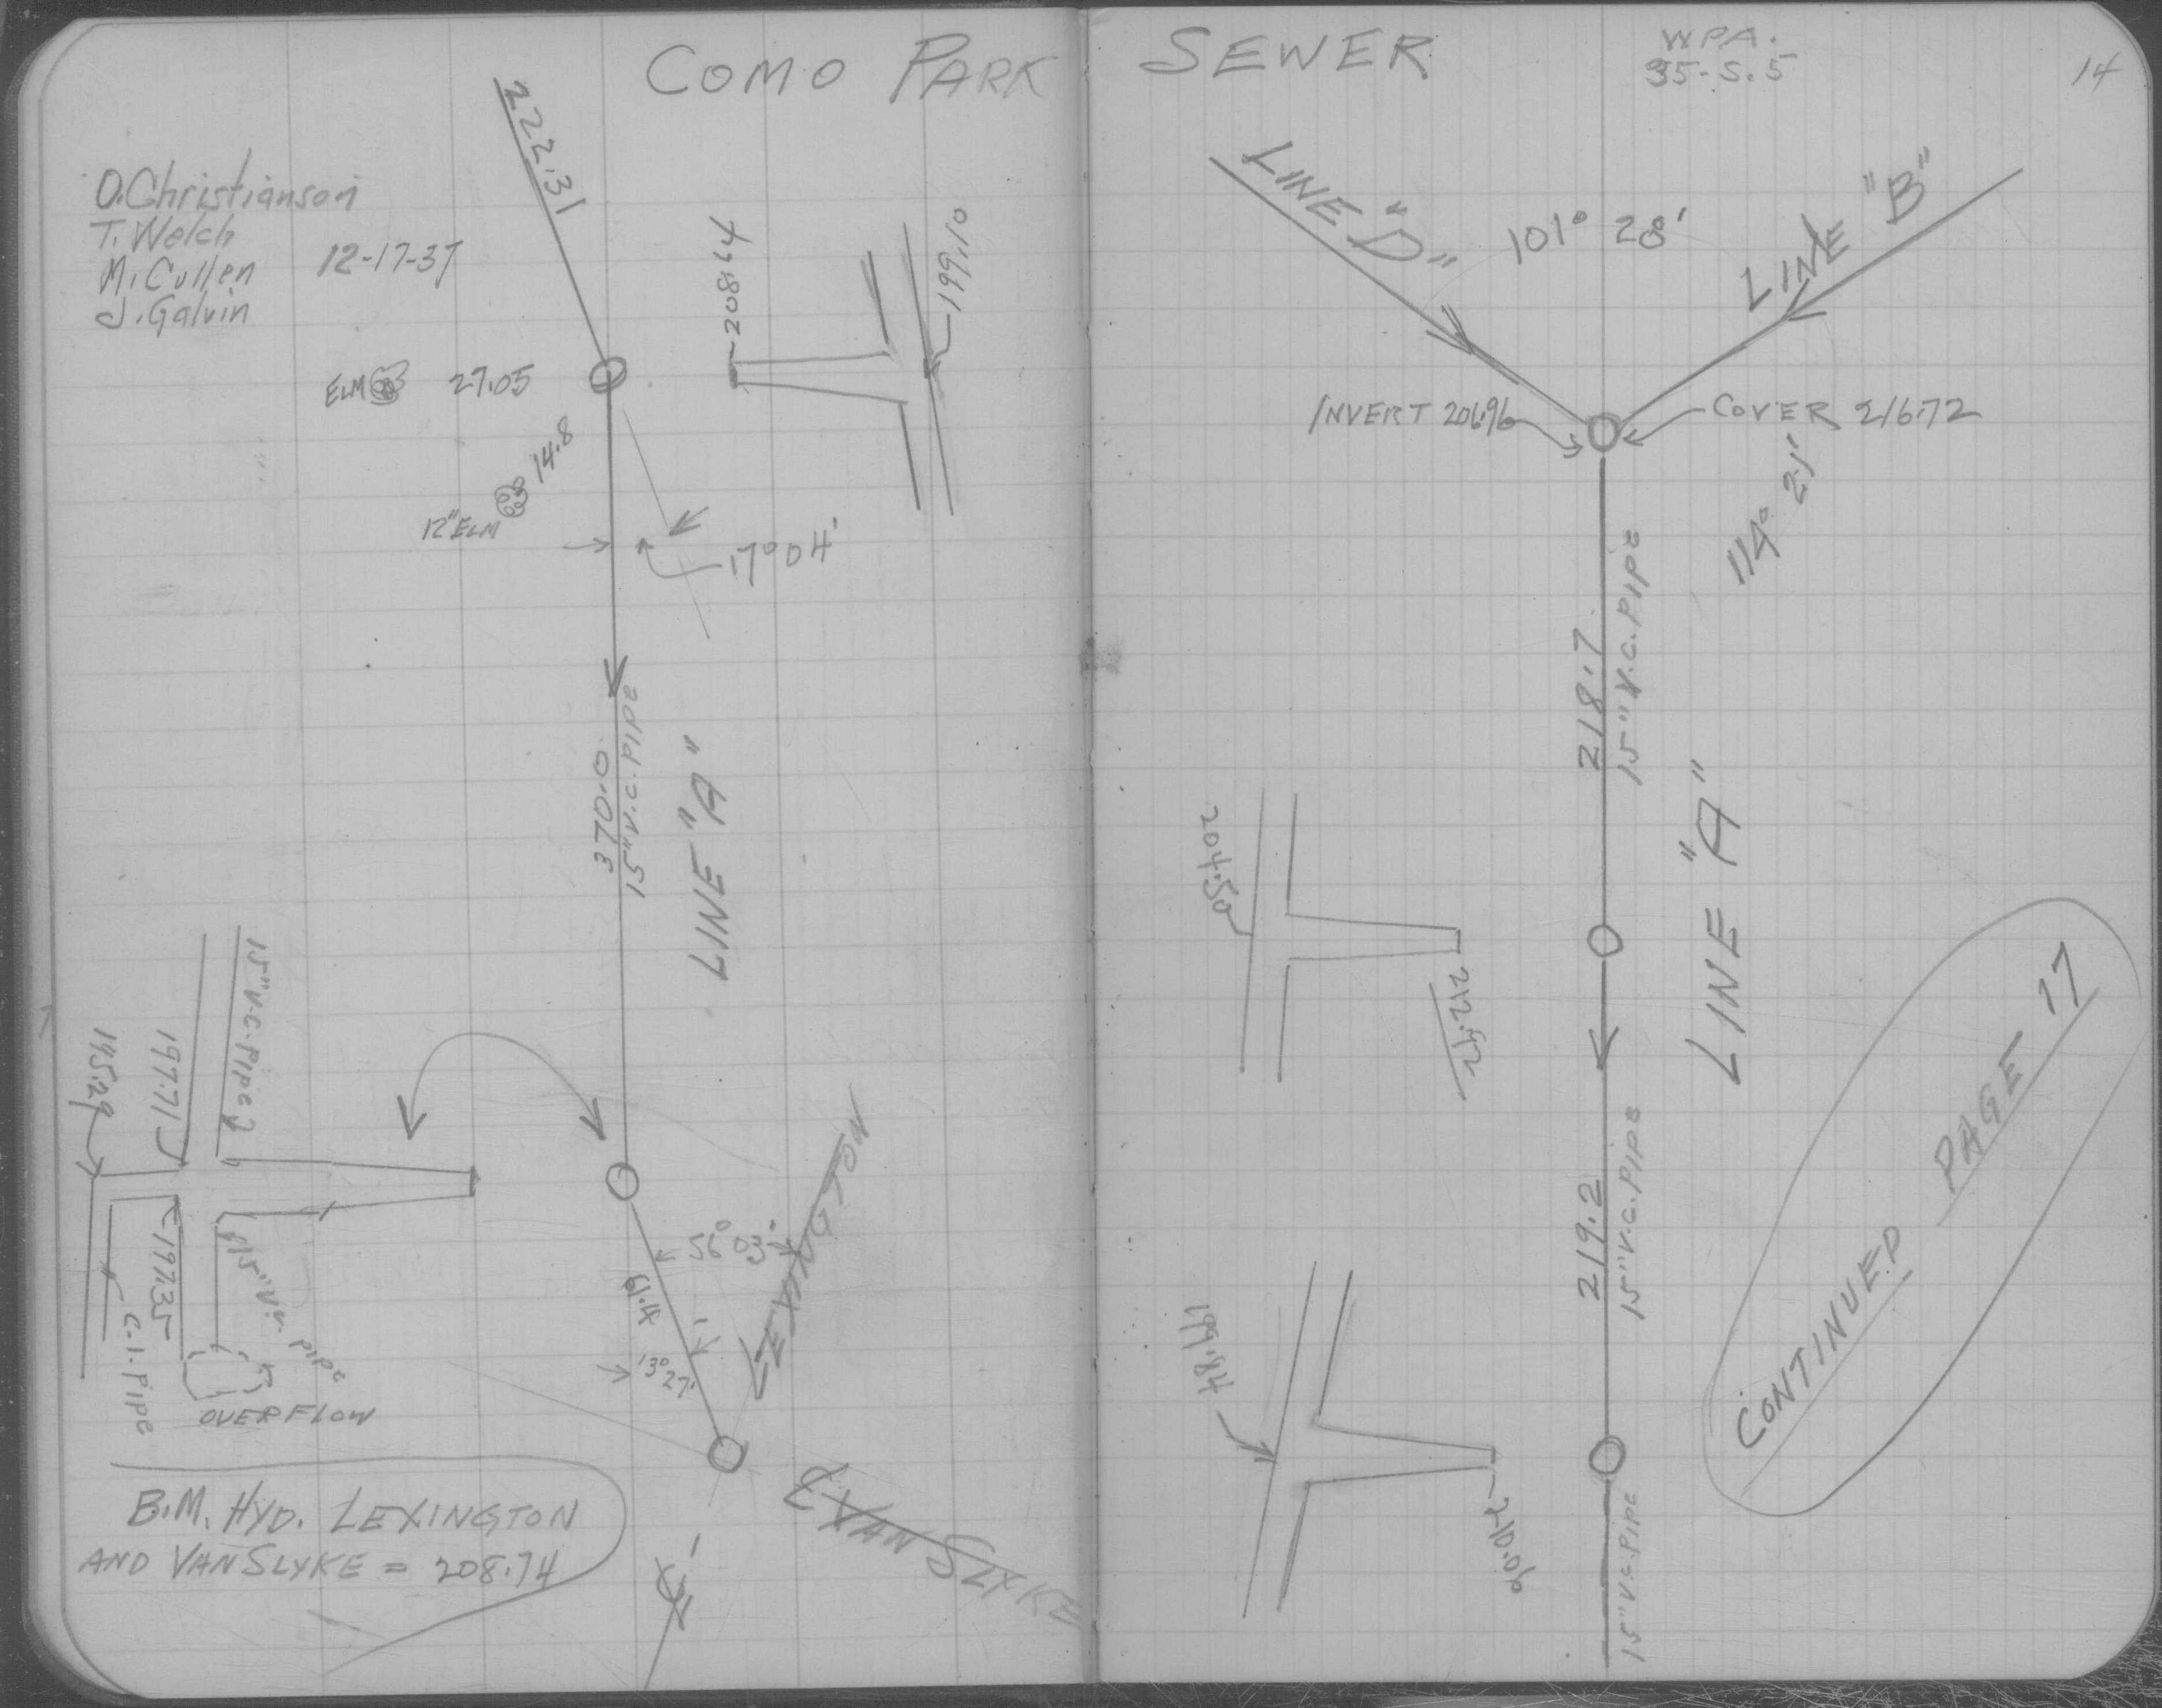 COMO PARK SEWER
WPA.
35-S.5
14
O. Christianson
T. Welch
M. Cullen
J. Galvin
12-17-37
222.31
208.64
199.10
ELM 27.05
12" ELM 14.8
17° 04'
370.0
15" V.C. PIPE
LINE "A"
15" V.C. PIPE
197.71
195.29
197.35
15" V.C. PIPE
C.I. PIPE
OVERFLOW
56° 03'
61.4
13° 27'
LEXINGTON
VAN SLYKE
B.M. HYD. LEXINGTON
AND VAN SLYKE = 208.74
LINE "D"
101° 28'
LINE "B"
INVERT 206.96
COVER 216.72
114° 21'
218.7
15" V.C. PIPE
LINE "A"
204.50
212.42
219.2
15" V.C. PIPE
199.84
210.06
15" V.C. PIPE
CONTINUED PAGE 17